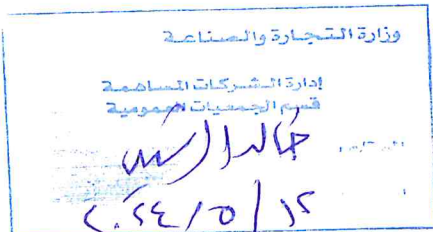 وزارة التجارة والصناعة
إدارة الشركات المساهمة
قسم الجمعيات العمومية
خالد الرشيد
٢٠٢٤/٥/١٢